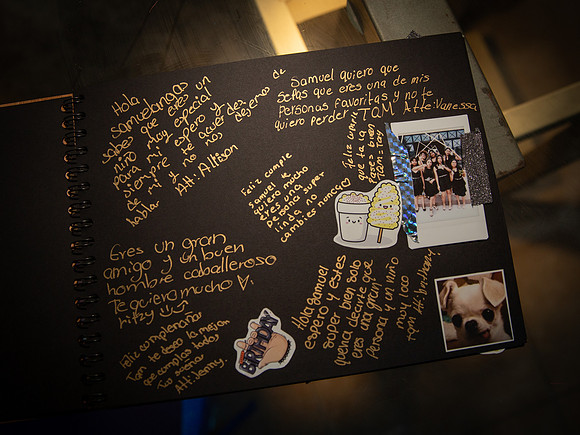 Hola
Samuelangas
sabes que eres un
niño muy especial
para mi espero y
siempre te acuerdes
de mi y no nos dejemos de
hablar
Att: Allison
Samuel quiero que
sepas que eres una de mis
Personas favoritas y no te
quiero perder TQM Atte: Vanessa
Feliz cumple
que te la
pases bien
Feliz cumple
Samuel te
quiero mucho
eres una
persona super
linda no
cambies nunca
Eres un gran
amigo y un buen
hombre caballeroso
Te quiero mucho
litzy
Feliz cumpleaños
Tqm te deseo lo mejor
que cumplas todos
Tus sueños
Att:
Hola Samuel
espero y estes
super bien solo
queria decirte que
eres una gran
Persona y un niño
muy loco
Tqm Att:
BIRTHDAY